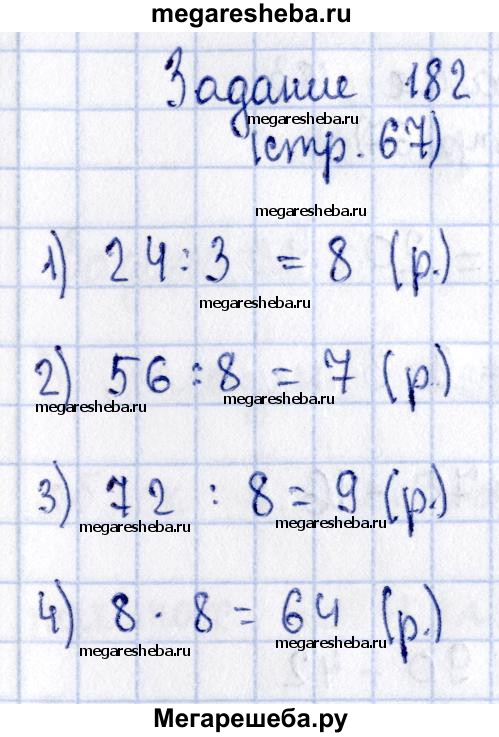 megaresheba.ru
Задание 182
megaresheba.ru
(стр. 67)
megaresheba.ru
1) 24 : 3 = 8 (р.)
megaresheba.ru
2) 56 : 8 = 7 (р.)
megaresheba.ru megaresheba.ru
3) 72 : 8 = 9 (р.)
megaresheba.ru megaresheba.ru
4) 8 · 8 = 64 (р.)
megaresheba.ru megaresheba.ru
Мегарешеба.ру